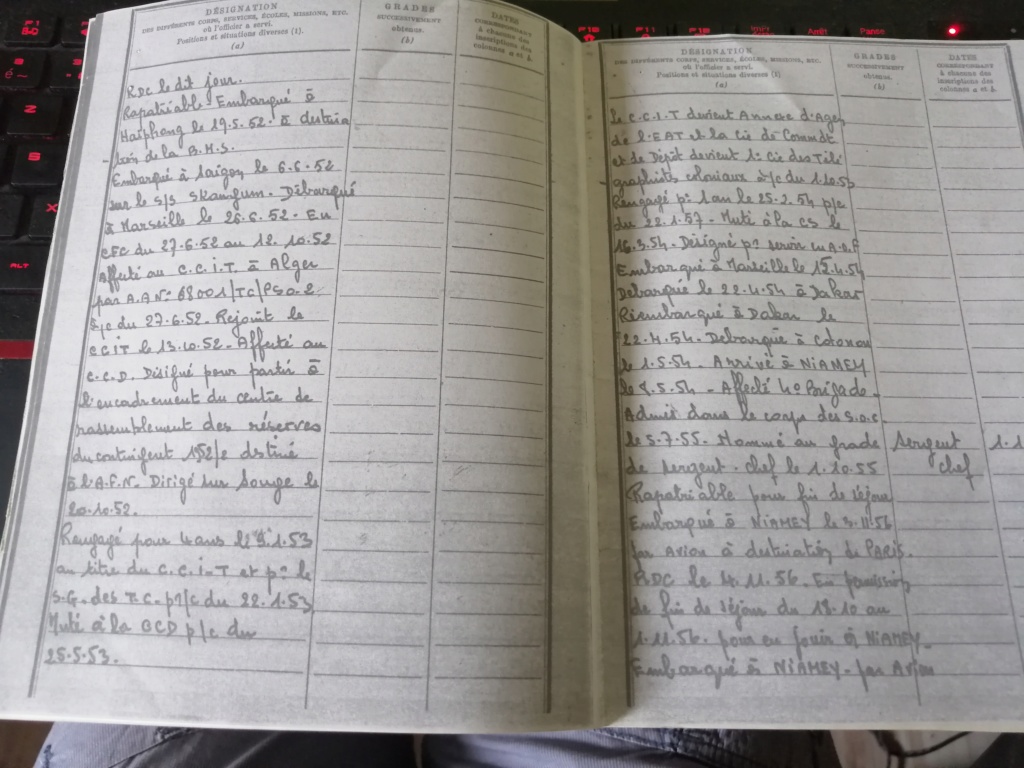 DÉSIGNATION
DES DIFFÉRENTS CORPS, SERVICES, ÉCOLES, MISSIONS, ETC.
où l'officier a servi.
Positions et situations diverses (1).
(a)
GRADES
SUCCESSIVEMENT
obtenus.
(b)
DATES
CORRESPONDANT
à chacune des
inscriptions des
colonnes a et b.
RDC le dit jour.
Rapatriable. Embarqué à
Haïphong le 19.5.52. à destina
de la B.M.S.
Embarqué à Saigon le 6.6.52
sur le S/S Skaugum. Débarqué
à Marseille le 26.6.52. En
CFC du 27.6.52 au 12.10.52
Affecté au C.C.I.T. à Alger
par A.A.N° 68001/TC/
du 27.6.52. Rejoint le
CCIT le 13.10.52. Affecté au
C.C.D. Désigné pour partir à
l'encadrement du centre de
rassemblement des réserves
du contingent 152/2 destiné
à l'A.F.N. Dirigé sur Souge le
20.10.52.
Rengagé pour 4 ans le 9.1.53
au titre du C.C.I.T et pr le
S.G. des T.C. p/c du 22.1.53
Muté à la BCD p/c du
25.5.53.
DÉSIGNATION
DES DIFFÉRENTS CORPS, SERVICES, ÉCOLES, MISSIONS, ETC.
où l'officier a servi.
Positions et situations diverses (1)
(a)
GRADES
SUCCESSIVEMENT
obtenus.
(b)
DATES
CORRESPONDANT
à chacune des
inscriptions des
colonnes a et b.
le C.C.I.T devient Annexe d'Agen
de l'EAT et la Cie de Commdt
et de Dépôt devient 1° Cie des Télé
graphistes coloniaux p/c du 1.10.53
Rengagé pr 1 an le 25.2.54 p/c
du 22.1.57. Muté à la CS le
16.3.54. Désigné pr servir en A.O.F
Embarqué à Marseille le 15.4.54
Debarqué le 22.4.54 à Dakar
Réembarqué à Dakar le
22.4.54. Debarqué à Cotonou
le 1.5.54. Arrivé à NIAMEY
le 8.5.54. Affecté 4° Brigade.
Admis dans le corps des S.O.C
le 5.7.55. Nommé au grade Sergent 1.1
de sergent-chef le 1.10.55 chef
Rapatriable pour fin de séjour
Embarqué à NIAMEY le 3.11.56
par Avion à destination de PARIS.
RDC le 4.11.56. En permission
de fin de séjour du 18.10 au
1.11.56. pour en jouir à NIAMEY.
Embarqué à NIAMEY. par Avion